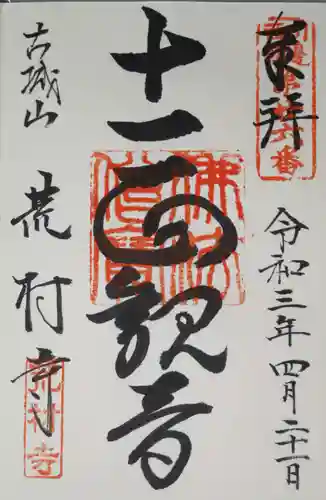 奉拝
令和三年四月二十一日
十一面観音
佛法僧寶
古城山
荒村寺
荒村寺